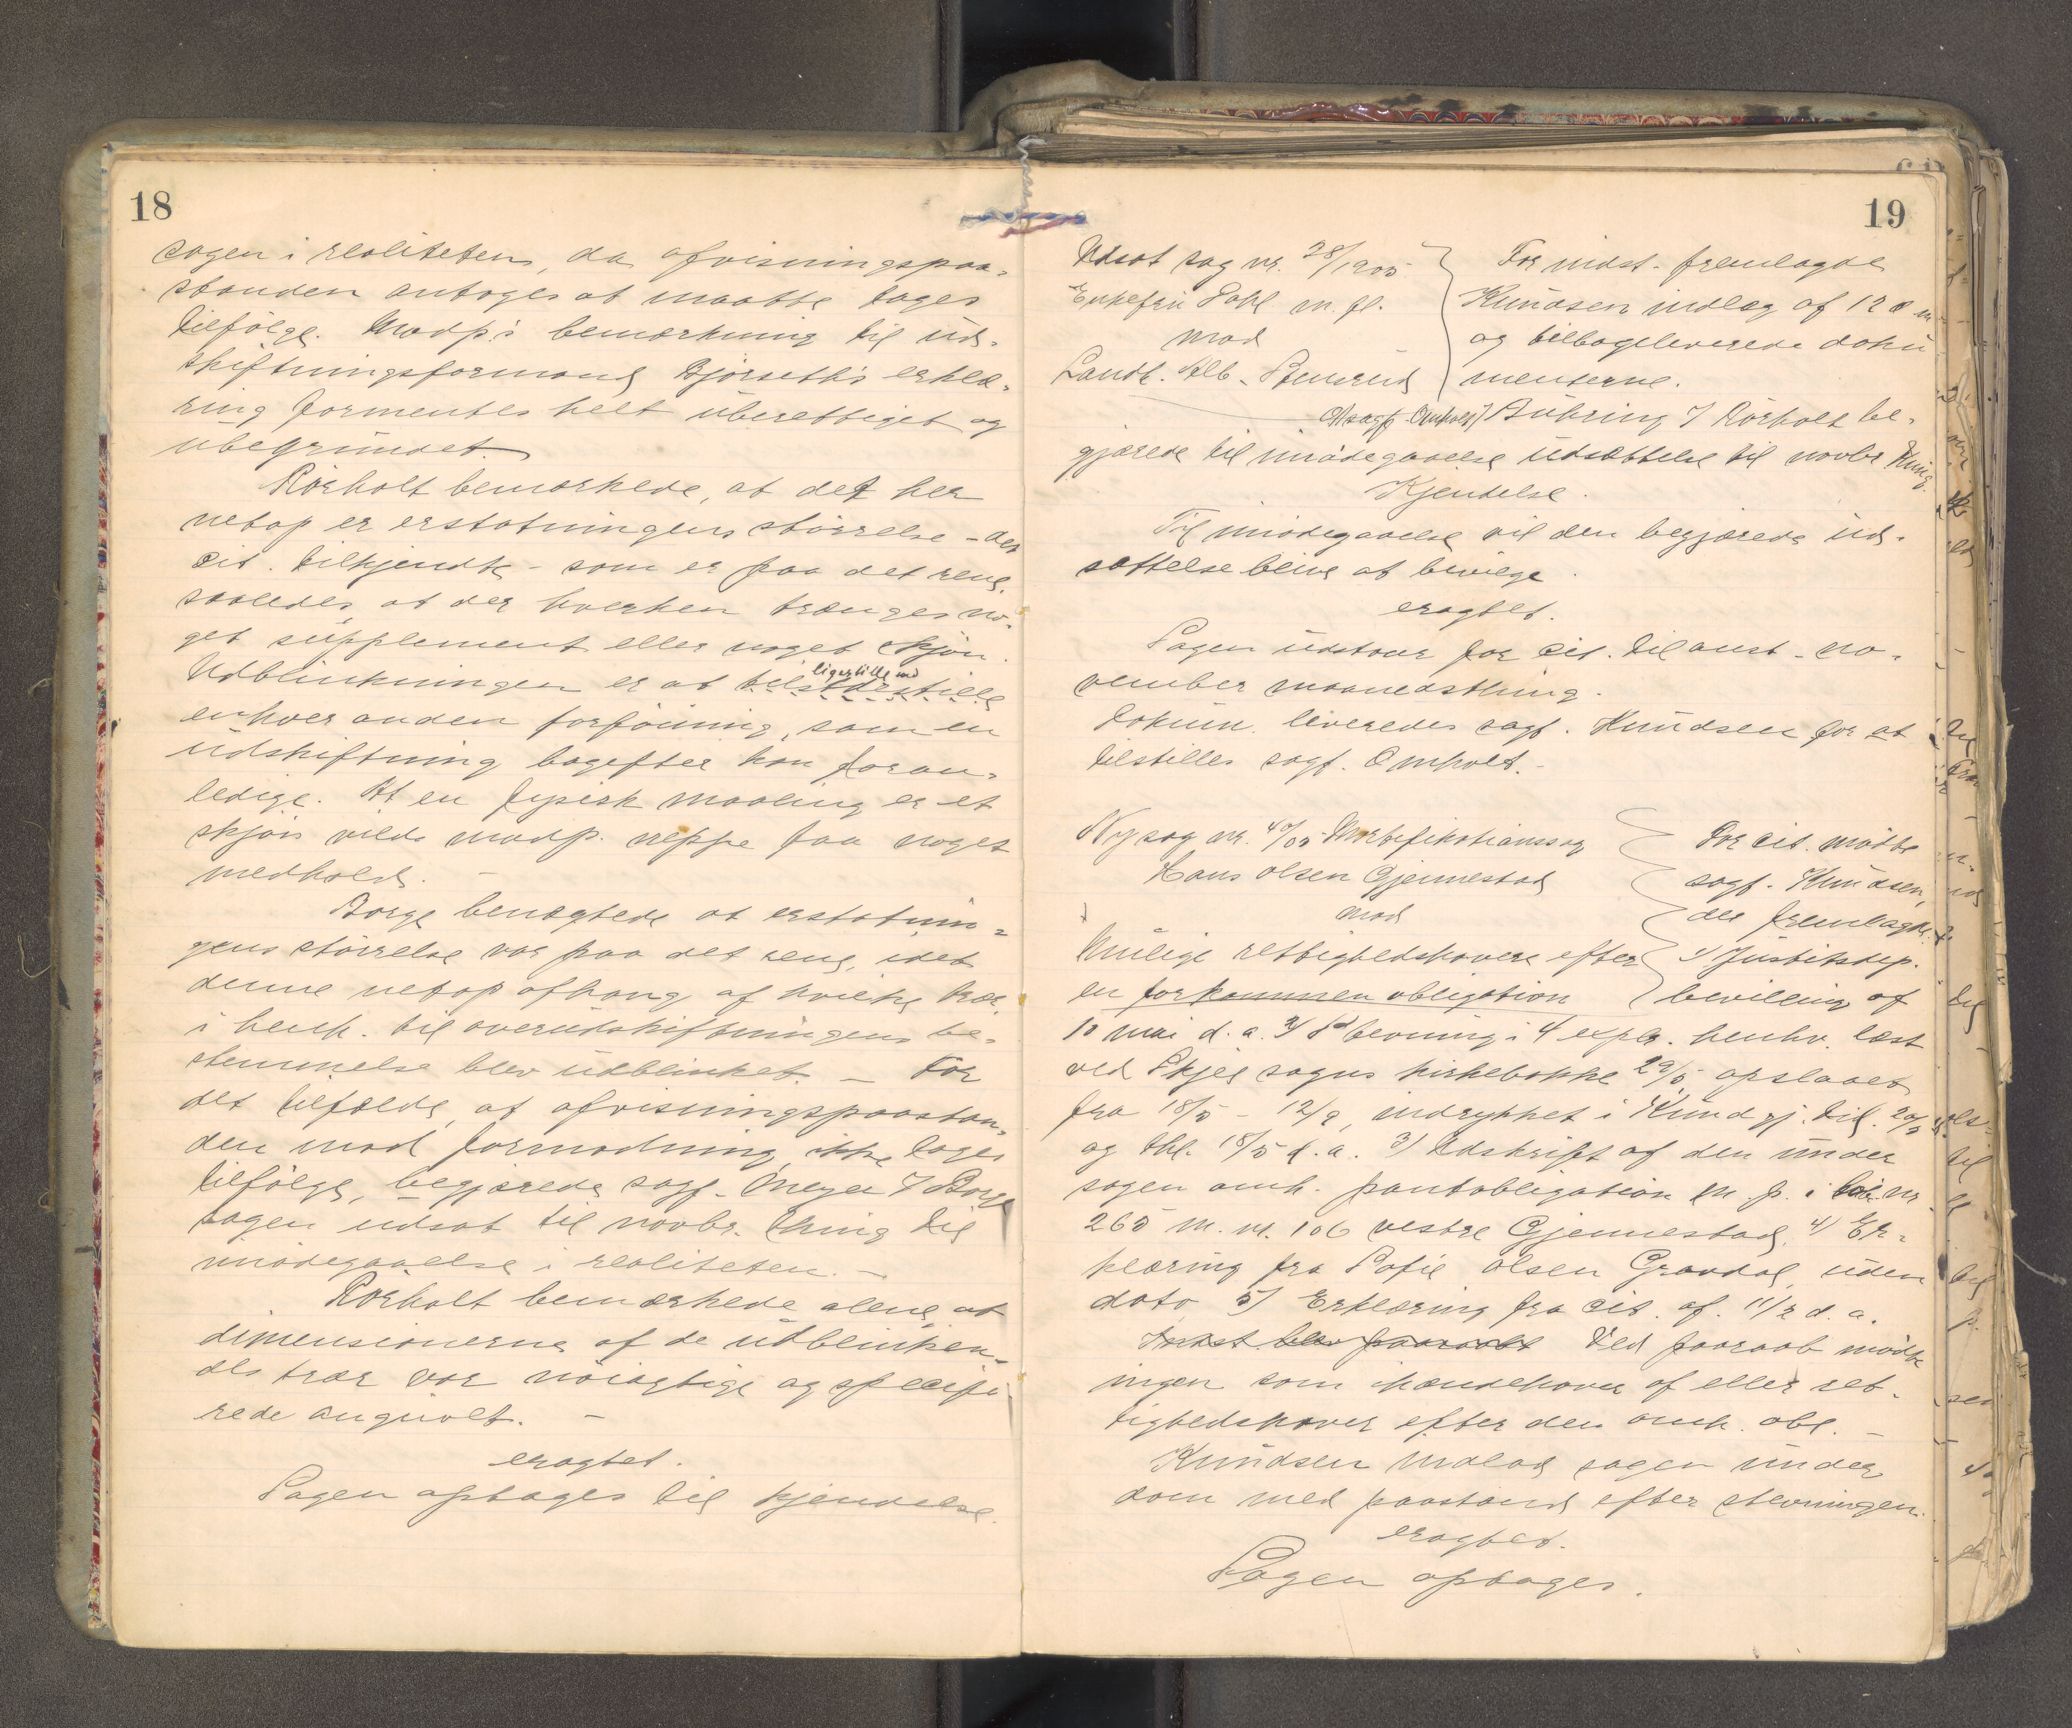 18
sagen i realiteten, da afvisningspaa-
standen antoges at maatte tages
tilfölge. Modp.s bemærkning til ud-
skiftningsformand Bjørseths erklæ-
ring formentes helt uberettiget og
ubegrundet.
Rörholt bemærkede, at det her
netop er erstatningens størrelse - det
cit. tilkjendte - som er paa det rene,
saaledes, at der hverken trænges no-
get supplement eller noget skjøn.
Udblinkningen er at ligestille med
enhver anden forføining, som en
udskiftning bagefter kan foran-
ledige. At en fysisk maaling er et
skjøn vilde modp. neppe faa noget
medhold. -
Borge benægtede at erstatnin-
gens størrelse var paa det rene, idet
denne netop afhang af hvilke træer
i henh. til overudskiftningens be-
stemmelse blev udblinket. - For
det tilfælde, at afvisningspaastan-
den mod formodning ikke tages
tilfølge, begjærede sagf. Meyer / Borge
sagen udsat til novbr. thing til
imødegaaelse i realiteten. -
Rörholt bemærkede alene at
dimensionerne af de udblinken-
de trær var nøiagtige og specifi
rede angivelt. -
eragtet.
Sagen optages til kjendelse.
19
Udsat sag nr. 28/1905
Enkefru Dahl m. fl.
mod
Landh. Alb.
For indst. fremlagde
Knudsen indlæg af 12 d. m.
og tilbageleverede doku
menterne.
Bühring / Rörholt be-
gjærede til imødegaaelse udsættelse til novbr thing.
Kjendelse.
Til imødegaaelse vil den begjærede ud-
sættelse blive at bevilge.
eragtet.
Sagen udstaar for cit. til anst. no-
vember maanedsthing.
Dokum. leveredes sagf. Knudsen for at
tilstilles sagf. Omholt. -
Ny sag nr. 40/05 Mortifikationssag
Hans Olsen Gjennestad
mod
Mulige rettighedshavere efter
en forkommen obligation
For cit. mødte
sagf. Knudsen,
der fremlagde
1/ Justitsdep.
bevilling af
10 mai d. a. 2/ Stevning i 4 expl. henhv. læst
ved Skjee sogns kirkebakke 29/5, opslaaet
fra 18/5 - 12/9, indrykket i Kundgj. tid. 20/5
og tbl. 18/5 d. a. 3/ Udskrift af den under
sagen omh. pantobligation m. p. i løbe nr
265 m. nr. 106 vestre Gjennestad. 4/ Er-
klæring fra Sofie Olsen Gravdal, uden
dato 5/ Erklæring fra cit. af 11/2 d. a.
Ved paaraab mødte
ingen som ihændehaver af eller ret-
tighedshaver efter den omh. obl. -
Knudsen indlod sagen under
dom med paastand efter stevningen.
eragtet.
Sagen optages.